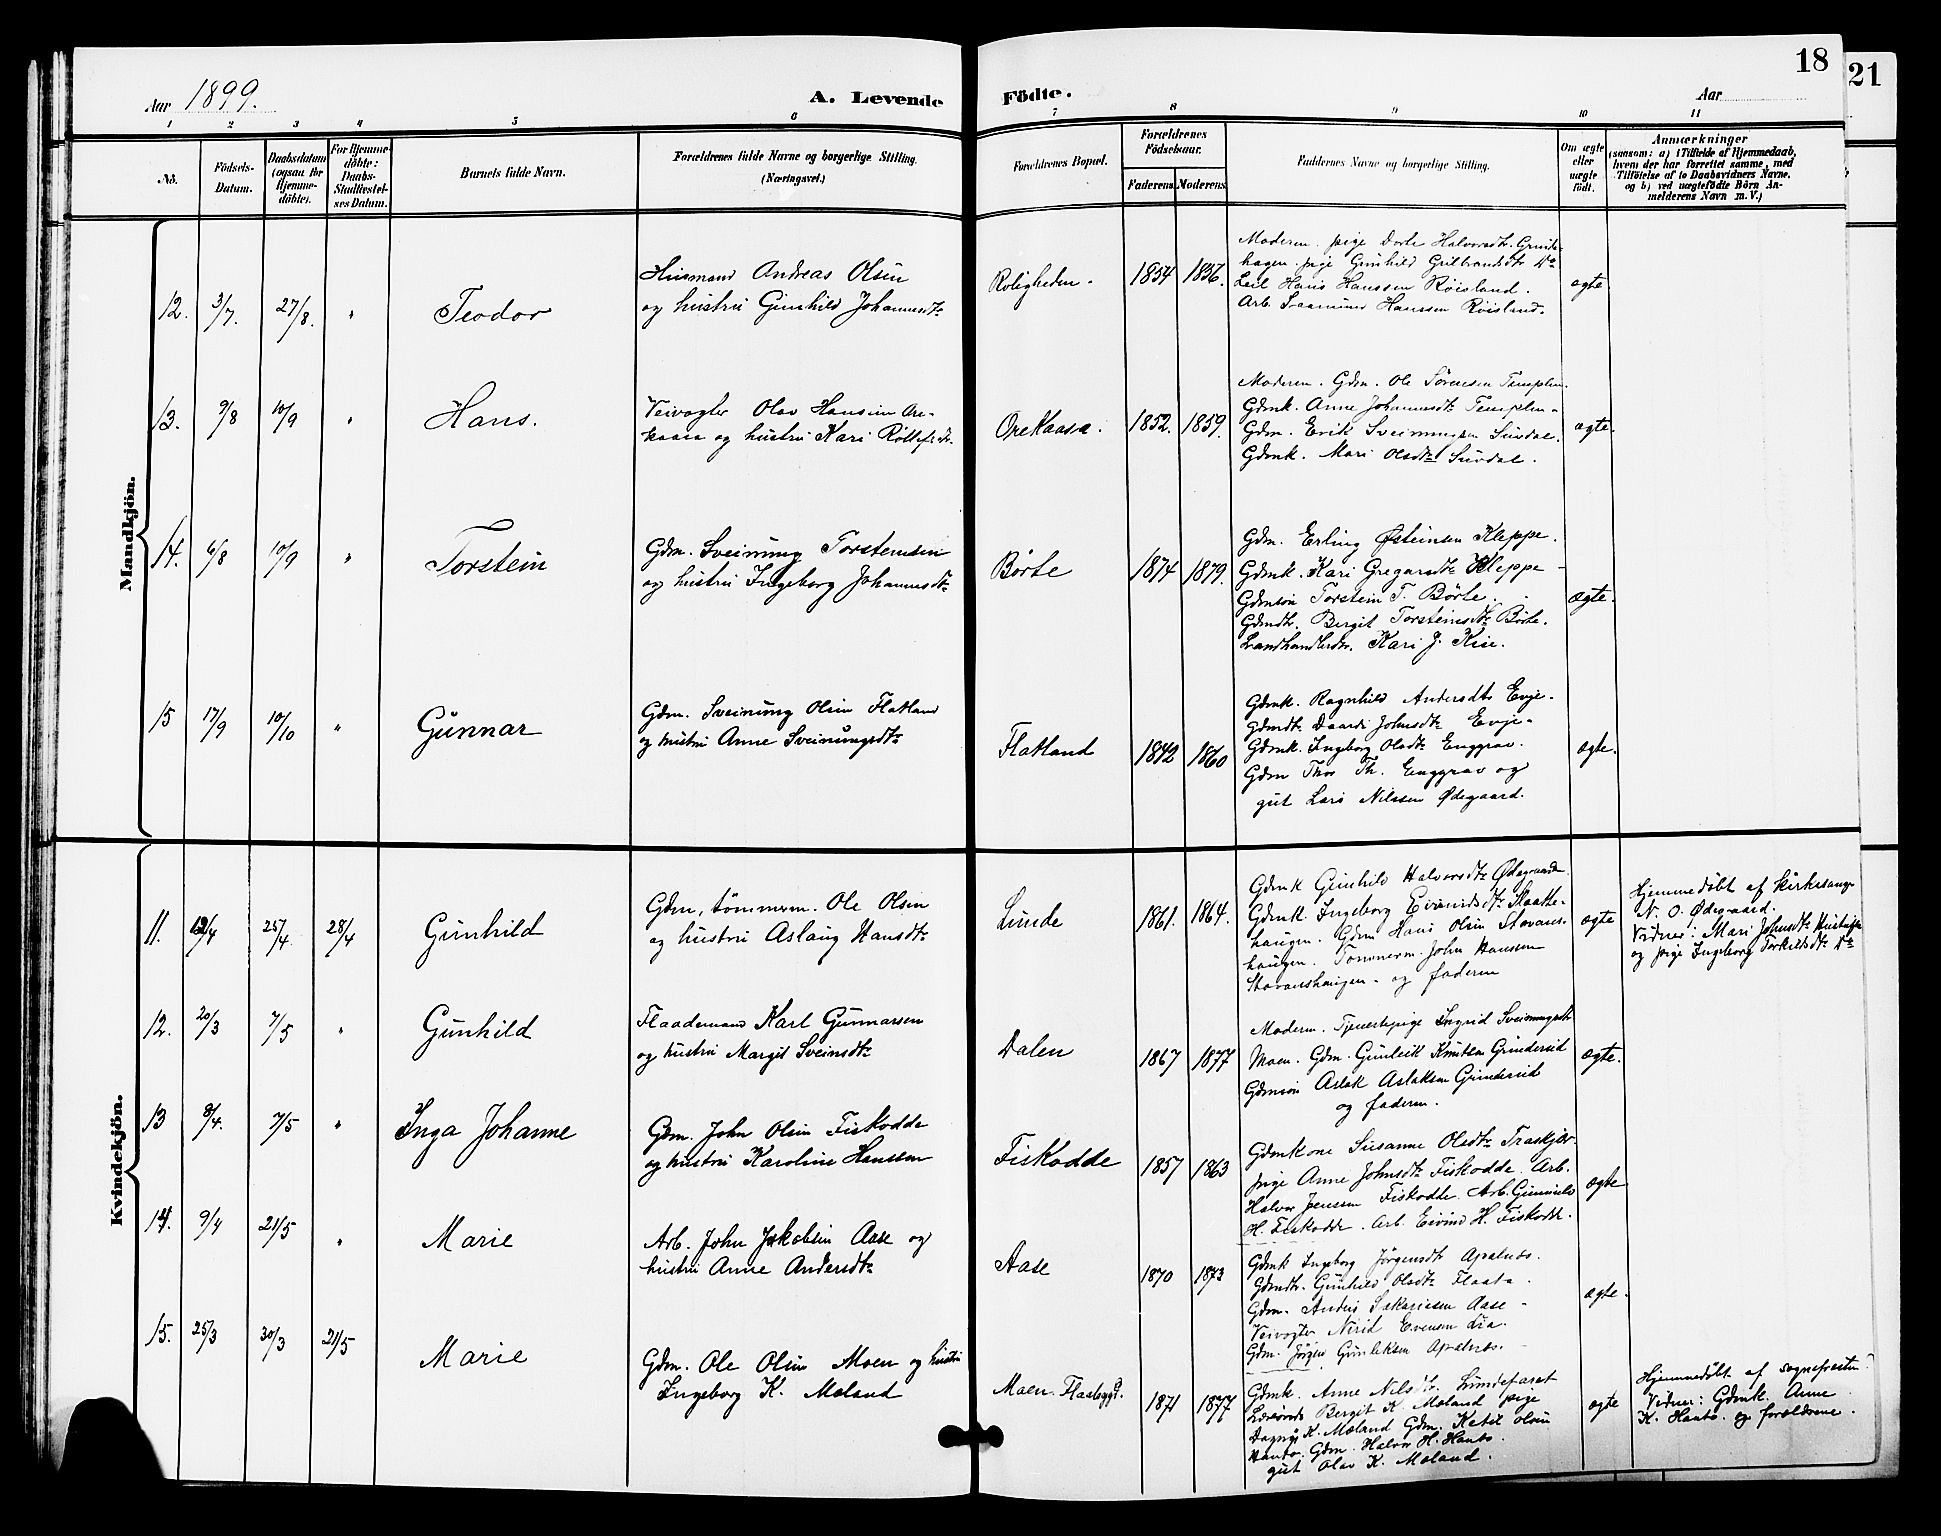 Aar 1899.
A. Levende Födte.
Aar
18
21
1 2 3 4 5 6 7 8 9 10 11
No.
Födsels-
Datum.
Daabsdatum
(ogsaa for
Hjemme-
döbte).
For Hjemme-
döbte:
Daabs-
Stadfæstel-
ses Datum.
Barnets fulde Navn.
Forældrenes fulde Navne og borgerlige Stilling.
(Næringsvei.)
Forældrenes Bopæl.
Forældrenes
Födselsaar.
Faderens.
Moderens.
Faddernes Navne og borgerlige Stilling.
Om ægte
eller
uægte
födt.
Anmærkninger
(saasom: a) i Tilfælde af Hjemmedaab,
hvem der har forrettet samme, med
Tilföielse af to Daabsvidners Navne.
og b) ved uægtefödte Börn An-
melderens Navn m. V.)
Mandkjön.
12. 3/7. 27/8. " Teodor
Husmand Andreas Olsen
og hustru Gunhild Johannesdtr
Roligheden. 1854 1856.
Moderen. pige Dorte Halvorsdtr. Grinde-
hagen. pige Gunhild Gulbrandsdtr Do
Leil Hans Hanssen Røisland.
Arb. Saamund Hanssen Røisland.
ægte
13. 9/8 10/9 " Hans.
Veivogter Olav Hansen Ore-
kaasa og hustru Kari
Orekaasa. 1852. 1859.
Moderen. Gdm. Ole Sørensen Templen.
Gdmk. Anne Johannesdtr Templen.
Gdm. Erik Sveinungsen Suvdal.
Gdmk. Mari Olsdtr Suvdal.
ægte.
14. 6/8 10/9 " Torstein
Gdm. Sveinung Torsteinsen
og hustru Ingeborg Johannesdtr
Børte 1874 1879.
Gdm. Erling Østeinsen Kleppe.
Gdmk. Kari Gregarsdtr Kleppe
Gdmsøn Torstein T. Børte.
Gdmdtr. Bergit Torsteinsdtr Børte.
Landhandlerdtr. Kari J. Kise.
ægte.
15 17/9 10/10 " Gunnar
Gdm. Sveinung Olsen Flatland
og hustru Anne Sveinungsdtr
Flatland 1842 1860
Gdmk. Ragnhild Andersdtr Evje.
Gdmdtr. Daardi Johnsdtr Evje.
Gdmk. Ingeborg Olsdtr Enggrav.
Gdm Thor Th. Enggrav og
gut Lars Nilssen Ødegaard.
ægte.
Kvindekjön.
11. 12/4 25/4. 28/4 Gunhild
Gdm, tømmerm. Ole Olsen
og hustru Aslaug Hansdtr
Lunde 1861. 1864.
Gdmk Gunhild Halvorsdtr Ødegaarden
Gdmk. Ingeborg Eivindsdtr Slaatte-
haugen. Gdm Hans Olsen Stavans-
haugen. Tømmerm. John Hansen
Stavanshaugen. og faderen
ægte
Hjemmedøbt af kirkesanger
N. O. Ødegaard.
Vidner: Mari Johnsdtr
og pige Ingeborg Torkilsdtr Do
12. 20/3 7/5 " Gunhild
Flaademand Karl Gunnarsen
og hustru Margit Sveinsdtr
Dalen 1867 1877
Moderen. Tjenestepige Ingrid Sveinungsdtr
Moen. Gdm. Gunleik Knutsen Grinderud
Gdmsøn Aslak Aslaksen Grinderud
og faderen.
ægte.
13 8/4. 7/5 " Inga Johanne
Gdm. John Olsen Fiskodde
og hustru Karoline Hanssen
Fiskodde 1857 1863
Gdmkone Susanne Olsdtr Traskjør
pige Anne Johnsdtr Fiskodde. Arb.
Halvor Jenssen Fiskodde. Arb. Gunnuld
H. Fiskodde. Arb. Eivind H. Fiskodde.
ægte
14. 9/4 21/5 " Marie
Arb. John Jakobsen Aase og
hustru Anne Andersdtr
Aase 1870 1873
Gdmk Ingeborg Jørgensdtr Apalnæs.
Gdmdtr. Gunhild Olsdtr Flaata.
Gdm. Anders Sakariasen Aase
Veivogter Nirid Evensen Lia.
Gdm. Jørgen Gunleiksen Apalnæs.
ægte.
15. 25/3 30/3 21/5 Marie
Gdm. Ole Olsen Moen og hustru
Ingeborg K. Moland
Moen. Flaabygd. 1871 1877
Gdmk. Anne Nilsdtr. Lundefaret
Bergit K. Moland pige
Dagny K. Moland Gdm. Ketil Olsen
Hauto. Gdm. Halvor H. Hauto.
gut Olav K. Moland.
ægte
Hjemmedøbt af sognepresten.
Vidner: Gdmk. Anne
K. Hauto. og forældrene.